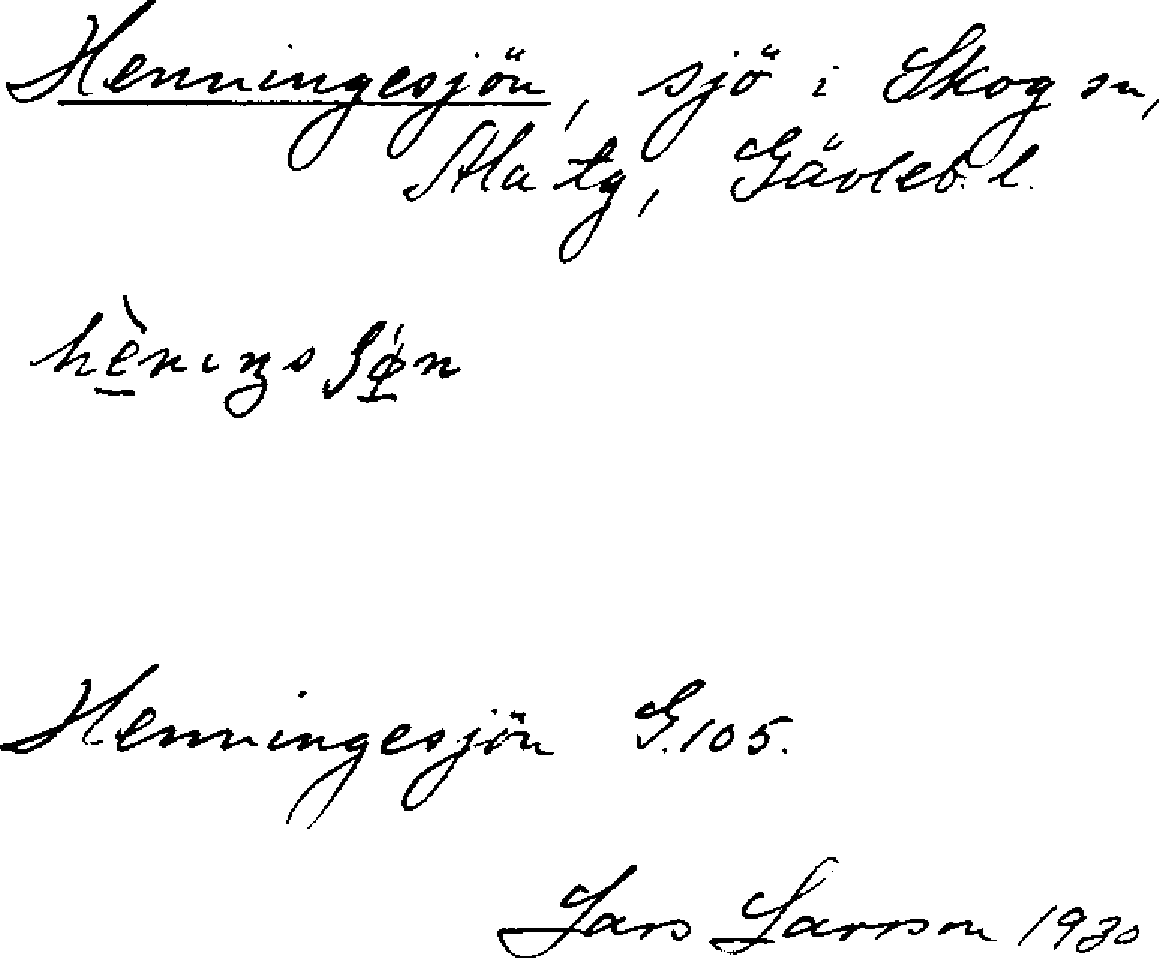 Henningesjön, sjö i Skog sn,
Ala tg, Gävleb. l.
Henningesjön G.105.
Lars Larsson 1930